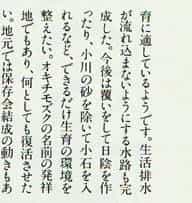 育に適しているようです。生活排水
が流れ込まないようにする水路も完
成した。今後は覆いをして日陰を作
ったり、小川の砂を除いて小石を入
れるなど、できるだけ生育の環境を
整えたい。オキチモズクの名前の発祥
地でもあり、何としても復活させた
い。地元では保存会結成の動きもあ